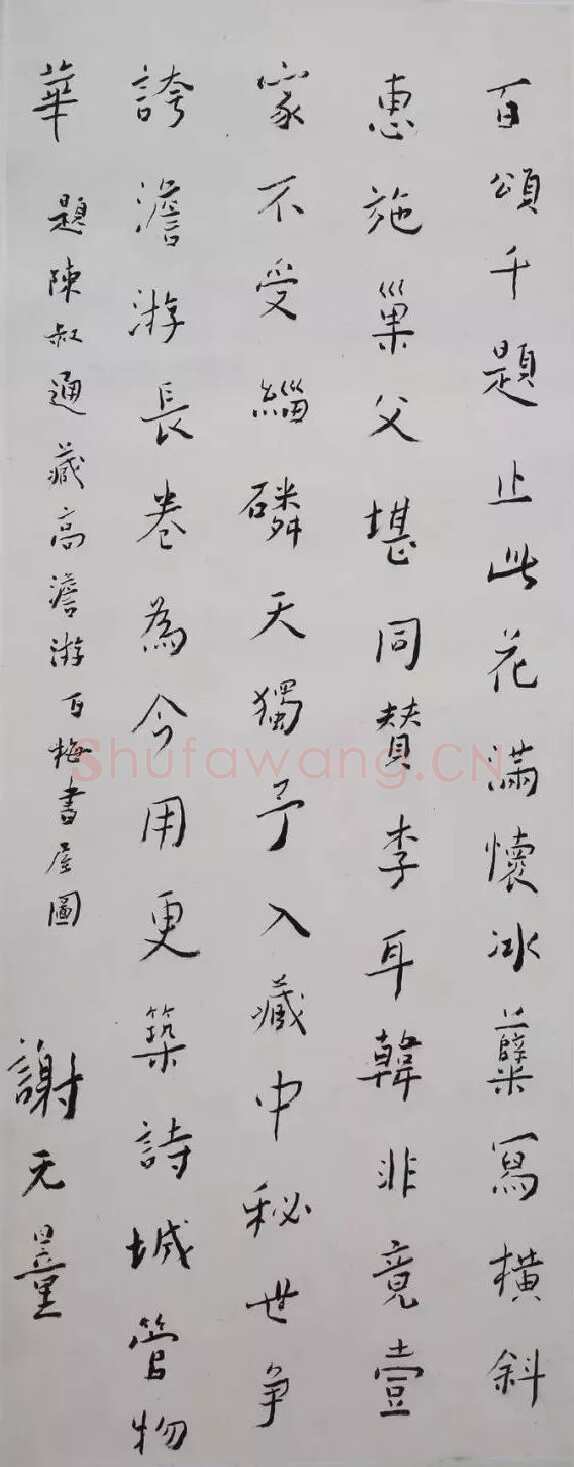 百頌千題止此花滿懷冰蘖寫橫斜
惠施巢父堪同贊李耳韓非竟壹
家不受緇磷天獨予入藏中秘世争
誇澹游長卷為今用更築詩城管物
華
題陳叔通藏高澹游百梅書屋圖
謝无量
Shufawang.CN